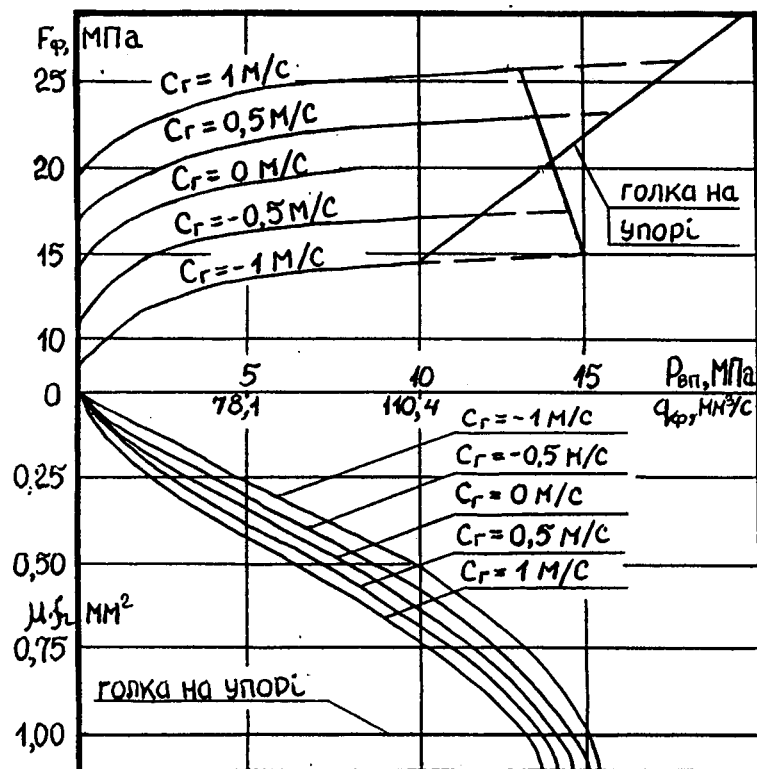 Fф, МПа
25
20
15
10
Cг = 1 М/С
Cг = 0,5 М/С
Cг = 0 М/С
Cг = -0,5 М/С
Cг = -1 М/С
голка на
упорі
5
10
15
Pвп, МПа
0
78,1
110,4
qкр, мм³/с
Cг = -1 М/С
Cг = -0,5 М/С
Cг = 0 М/С
Cг = 0,5 М/С
Cг = 1 М/С
0,25
0,50
μ·fг мм²
0,75
1,00
голка на упорі